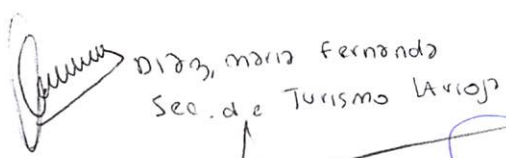 Diaz, maria Fernanda
Sec. de Turismo LA rioja